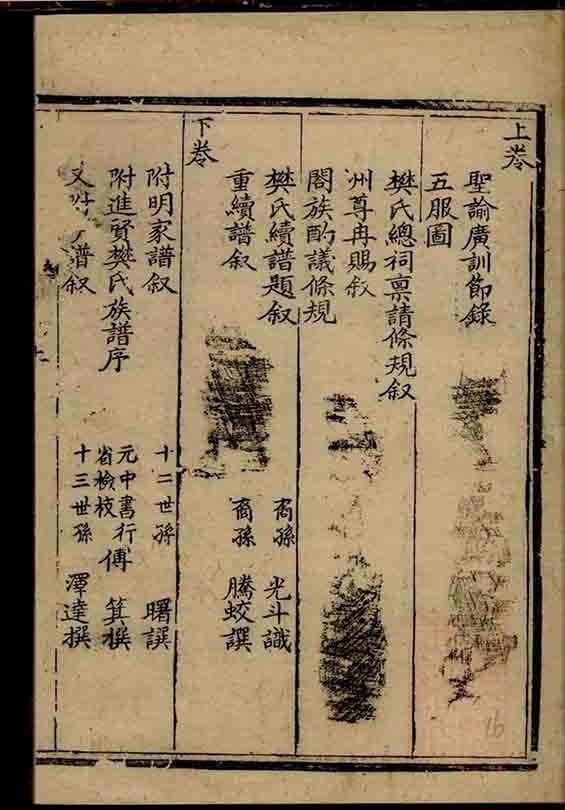 上卷
聖諭廣訓節錄
五服圖
樊氏總祠禀請條規叙
州尊冉賜叙
閤族酌議條規
樊氏續譜題叙 裔孫 光斗識
重續譜叙 裔孫 騰蛟譔
下卷
附明家譜叙 十二世孫 曙譔
附進賢樊氏族譜序 元中書行省檢校 傅箕撰
又附 譜叙 十三世孫 澤達撰
16